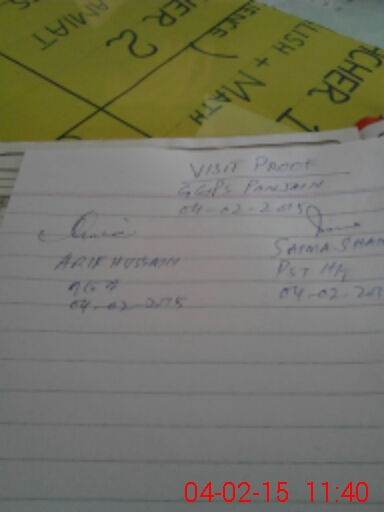 TEACHER 1
ENGLISH + MATH
TEACHER 2
VISIT PROOF
GGPS PANJAIN
04-02-2015
ARIF HUSSAIN
04-02-2015
SAIMA SHAH
PST HT
04-02-201
04-02-15 11:40